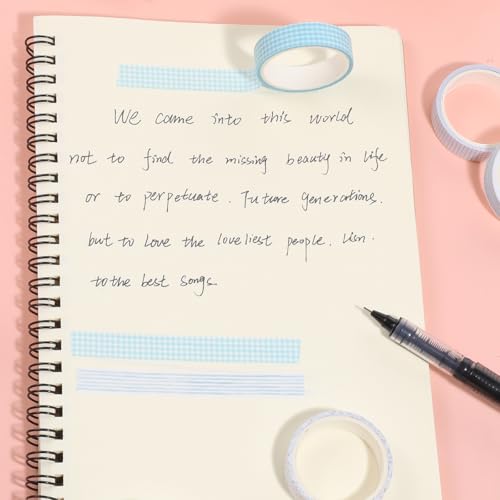 We came into this world
not to find the missing beauty in life
or to perpetuate. Future generations.
but to love the loveliest people. Lisn.
to the best songs.